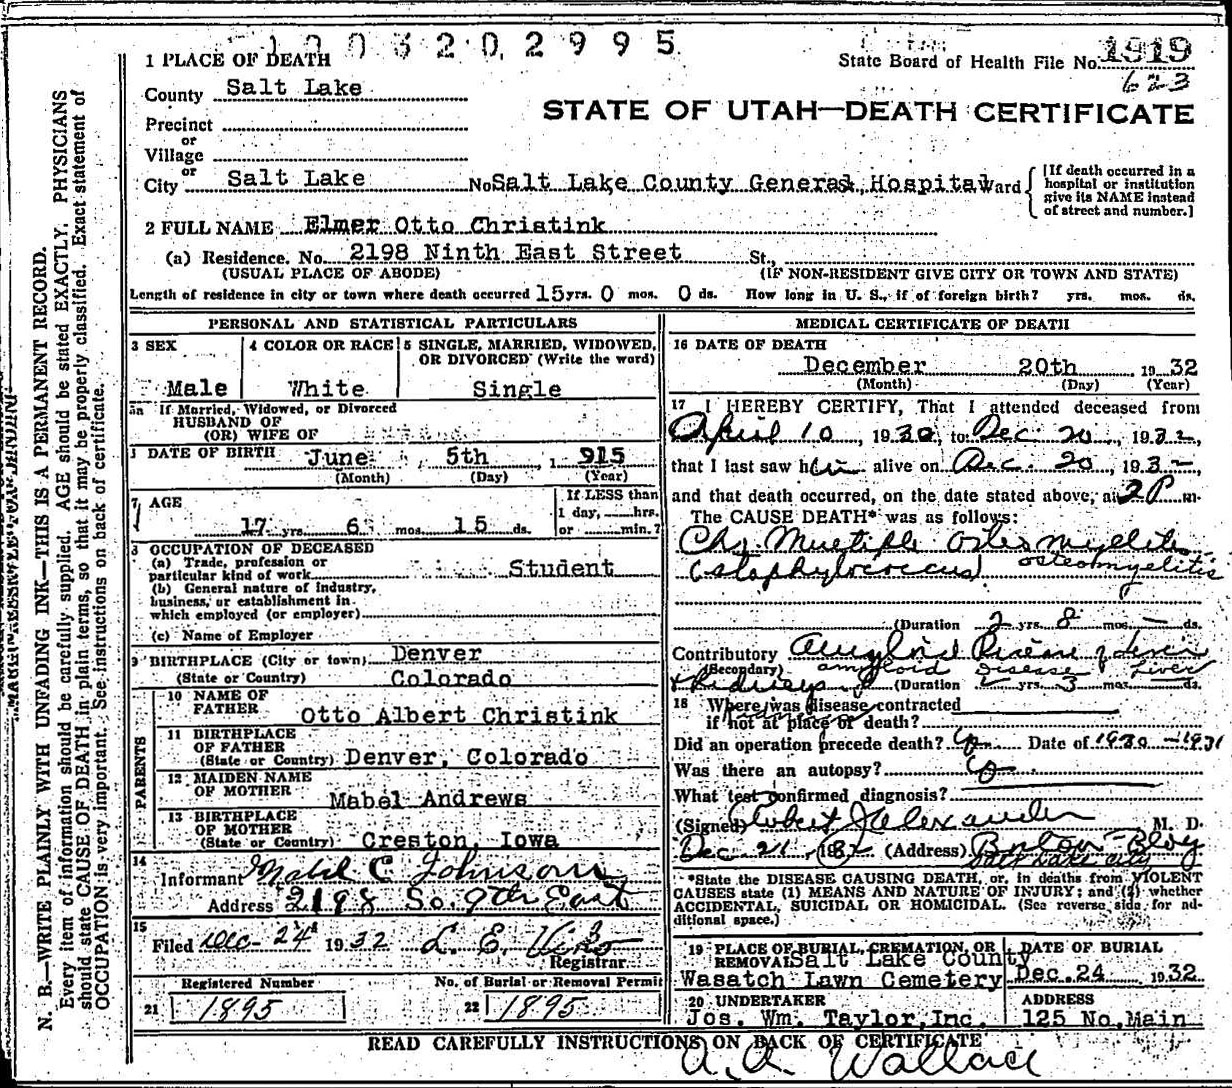 1 0 0 3 2 0 2 9 9 5
1 PLACE OF DEATH
State Board of Health File No. 1919
623
County Salt Lake
STATE OF UTAH—DEATH CERTIFICATE
Precinct
or
Village
or
City Salt Lake No Salt Lake County General Hospital Ward
[If death occurred in a
hospital or institution
give its NAME instead
of street and number.]
2 FULL NAME Elmer Otto Christink
(a) Residence. No. 2198 Ninth East Street St.,
(USUAL PLACE OF ABODE) (IF NON-RESIDENT GIVE CITY OR TOWN AND STATE)
Length of residence in city or town where death occurred 15 yrs. 0 mos. 0 ds. How long in U. S., if of foreign birth? yrs. mos. ds.
PERSONAL AND STATISTICAL PARTICULARS
3 SEX
Male
4 COLOR OR RACE
White
5 SINGLE, MARRIED, WIDOWED,
OR DIVORCED (Write the word)
Single
5a If Married, Widowed, or Divorced
HUSBAND OF
(OR) WIFE OF
DATE OF BIRTH June 5th, 1 915
(Month) (Day) (Year)
7 AGE
17 yrs. 6 mos. 15 ds.
If LESS than
1 day, hrs.
or min.?
8 OCCUPATION OF DECEASED
(a) Trade, profession or
particular kind of work Student
(b) General nature of industry,
business, or establishment in
which employed (or employer)
(c) Name of Employer
9 BIRTHPLACE (City or town) Denver
(State or Country) Colorado
PARENTS
10 NAME OF
FATHER Otto Albert Christink
11 BIRTHPLACE
OF FATHER
(State or Country) Denver, Colorado
12 MAIDEN NAME
OF MOTHER Mabel Andrews
13 BIRTHPLACE
OF MOTHER
(State or Country) Creston, Iowa
14
Informant Mabel C Johnson
Address 2198 So. 9th East
15
Filed Dec - 24 1932 L. E.
Registrar
Registered Number
21 1895
No. of Burial or Removal Permit
22 1895
MEDICAL CERTIFICATE OF DEATH
16 DATE OF DEATH
December 20th 1932
(Month) (Day) (Year)
17 I HEREBY CERTIFY, That I attended deceased from
April 10, 1930, to Dec. 20, 1932,
that I last saw him alive on Dec. 20, 1932,
and that death occurred, on the date stated above, at 2 P m.
The CAUSE DEATH* was as follows:
Chr. Multiple Osteomyelitis
(staphylococcus) osteomyelitis
(Duration 2 yrs. 8 mos. — ds.
Contributory Amyloid Disease of Liver
(Secondary) amyloid Disease Liver
& Kidneys (Duration 2 yrs. 3 mos. ds.
18 Where was disease contracted
if not at place of death?
Did an operation precede death? Yes Date of 1930 - 1931
Was there an autopsy?
What test confirmed diagnosis?
(Signed) Robert J Alexander M. D.
Dec 21, 1932 (Address) Boston Bldg
Salt Lake City
*State the DISEASE CAUSING DEATH, or, in deaths from VIOLENT
CAUSES state (1) MEANS AND NATURE OF INJURY; and (2) whether
ACCIDENTAL, SUICIDAL OR HOMICIDAL. (See reverse side for ad-
ditional space.)
19 PLACE OF BURIAL, CREMATION, OR
REMOVAL Salt Lake County
Wasatch Lawn Cemetery
DATE OF BURIAL
Dec. 24 1932
20 UNDERTAKER
Jos. Wm. Taylor, Inc.
ADDRESS
125 No. Main
READ CAREFULLY INSTRUCTIONS ON BACK OF CERTIFICATE
A. A. Wallace
N. B.—WRITE PLAINLY WITH UNFADING INK—THIS IS A PERMANENT RECORD.
Every item of information should be carefully supplied. AGE should be stated EXACTLY. PHYSICIANS
should state CAUSE OF DEATH in plain terms, so that it may be properly classified. Exact statement of
OCCUPATION is very important. See instructions on back of certificate.